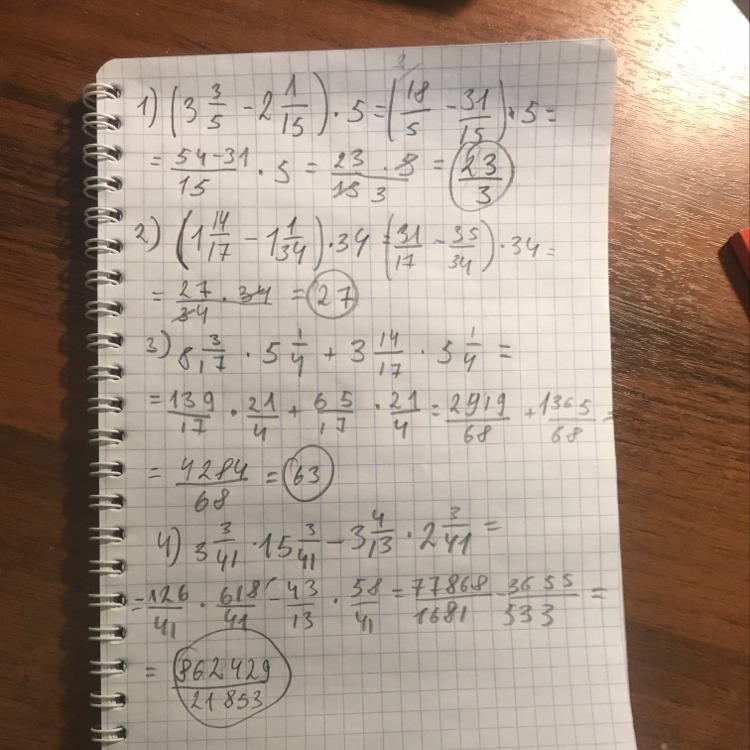 1) (3 3/5 - 2 1/15) · 5 = (18/5 - 31/15) · 5 =
= 54-31/15 · 5 = 23/15 3 · 5 = 23/3
2) (1 14/17 - 1 1/34) · 34 = (31/17 - 35/34) · 34 =
= 27/34 · 34 = 27
3) 8 3/17 · 5 1/4 + 3 14/17 · 5 1/4 =
= 139/17 · 21/4 + 65/17 · 21/4 = 2919/68 + 1365/68 =
= 4284/68 = 63
4) 3 3/41 · 15 3/41 - 3 4/13 · 2 3/41 =
= 126/41 · 618/41 - 43/13 · 58/41 = 77868/1681 - 3655/533 =
= 862429/21853